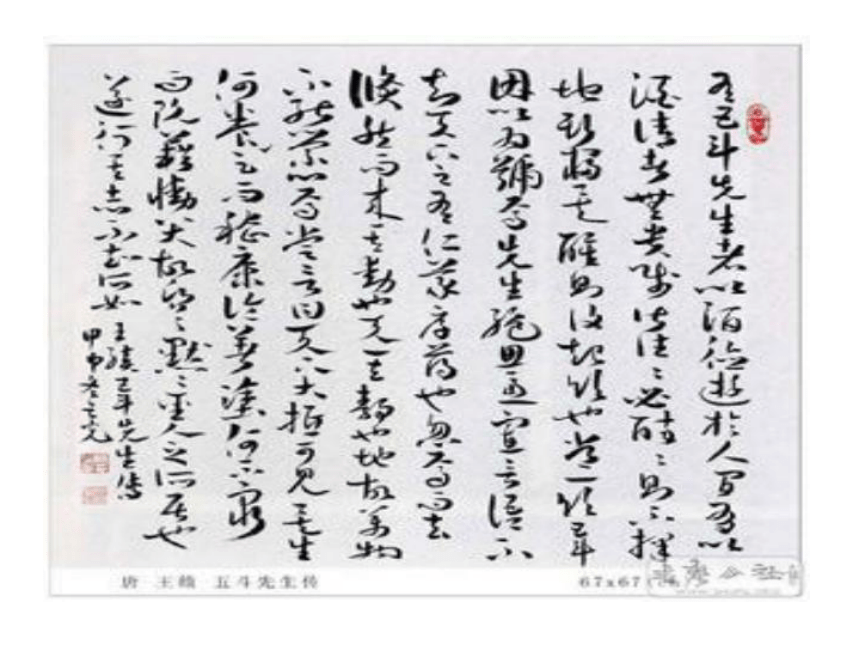 有五斗先生者以酒德遊於人間有以
酒請者無貴賤皆往々必醉々則不擇
地斯寢矣醒則復起飲也常一飲五斗
因以為號焉先生絕思慮寡言語不
知天下之有仁義厚薄也忽焉而去
倏然而來其動也天其靜也地故萬物
不能縈心焉嘗言曰天下大抵可見矣生
何養而嵇康論著塗何窮
而阮籍慟哭故昏々默々聖人之所居也
遂行其志不知所如
王績五斗先生傳
甲申冬
唐 王绩 五斗先生传
67x67